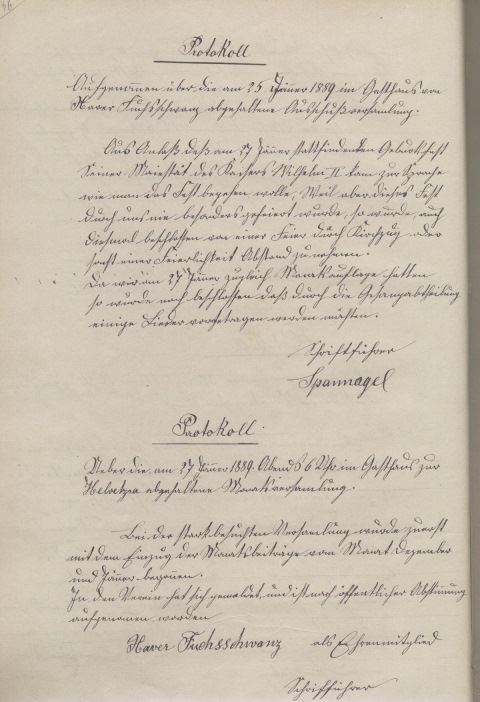 Protokoll
Aufgenommen über die am 25 Jänner 1889 im Gasthaus von
Xaver Fuchsschwanz abgehaltene Ausschußversammlung.
Aus Anlaß daß am 27 Jänner stattfindenden Geburtsfest
Seiner Majestät des Kaisers Wilhelm II kam zur Sprache
wie man das Fest begehen wolle, Weil aber dieses Fest
durch uns nie besonders gefeiert wurde, so wurde, auch
diesmal beschlossen von einer Feier durch Kirchzug oder
sonst einer Feierlichkeit Abstand zu nehmen.
Da wir am 27 Jänner zugleich Monatsauflage hatten
so wurde noch beschlossen daß durch die Gesangsabtheilung
einige Lieder vorgetragen werden möchten.
Schriftführer
Spannagel
Protokoll
Ueber die am 27 Jänner 1889. Abends 6 Uhr im Gasthaus zur
Helvetzia abgehaltene Monatsversammlung.
Bei der stark besuchten Versamlung wurde zuerst
mit dem Einzug der Monatsbeiträge vom Monat Dezember
und Jäner begonnen.
In den Verein hat sich gemeldet, und ist nach öffentlicher Abstimmung
aufgenomen worden
Xaver Fuchsschwanz als Ehrenmitglied
Schriftführer